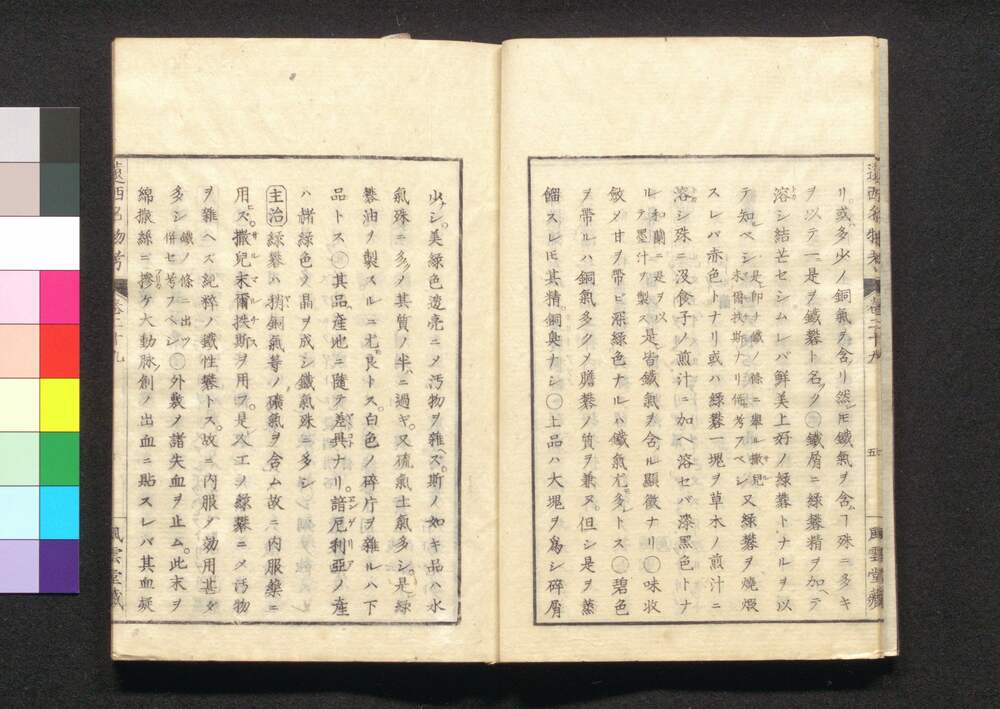 リ或多少ノ銅氣ヲ含リ然𪜈鐵氣ヲ含ヿ殊ニ多キ
ヲ以テ一是ヲ鐵礬ト名ク○鐵屑ニ綠礬精ヲ加ヘテ
溶シ結芒セシムレバ鮮美上好ノ綠礬トナルヲ以
テ知ベシ是即チ鐵ノ條ニ擧ル撒兒末爾扶斯ナリ併考フベシ又綠礬ヲ燒煆
スレバ赤色トナリ或ハ綠礬一塊ヲ草木ノ煎汁ニ
溶シ殊ニ沒食子ノ煎汁ニ加ヘ溶セバ漆黑色トナ
ル和蘭ニ是ヲ以テ墨汁ヲ製ス是皆鐵氣ヲ含ル顯徵ナリ○味收
斂メ甘ヲ帶ビ深綠色ナルハ鐵氣尤多トス○碧色
ヲ帶ルハ銅氣多クメ膽礬ノ質ヲ兼ヌ但シ是ヲ蒸
餾スレ𪜈其精銅臭ナシ○上品ハ大塊ヲ爲シ碎屑
遠西名物考 卷二十九 五 風雲堂藏
少シ美綠色透亮ニメ汚物ヲ雜ヘズ斯ノ如キ品ハ水
氣殊ニ多クメ其質ノ半ニ過ギ又硫氣土氣多シ是綠
礬油ヲ製スルニ尤良トス白色ノ碎片ヲ雜ルハ下
品トス○其品產地ニ隨テ差異ナリ諳厄利亞ノ產
ハ諸綠色ノ晶ヲ成シ鐵氣殊ニ多シ
主治綠礬ハ搠銅氣等ノ礦氣ヲ含ム故ニ內服藥ニ
用ズ撒兒末爾扶斯ヲ用フ是人工ノ綠礬ニメ汚物
ヲ雜ヘズ純粹ノ鐵性礬トス故ニ內服メ効用甚タ
多シ鐵ノ條ニ出ツ併セ考フベシ○外敷メ諸失血ヲ止ム此末ヲ
綿撒絲ニ摻ケ大動脉創ノ出血ニ貼スレバ其血凝
遠西名物考 卷二十九 風雲堂藏